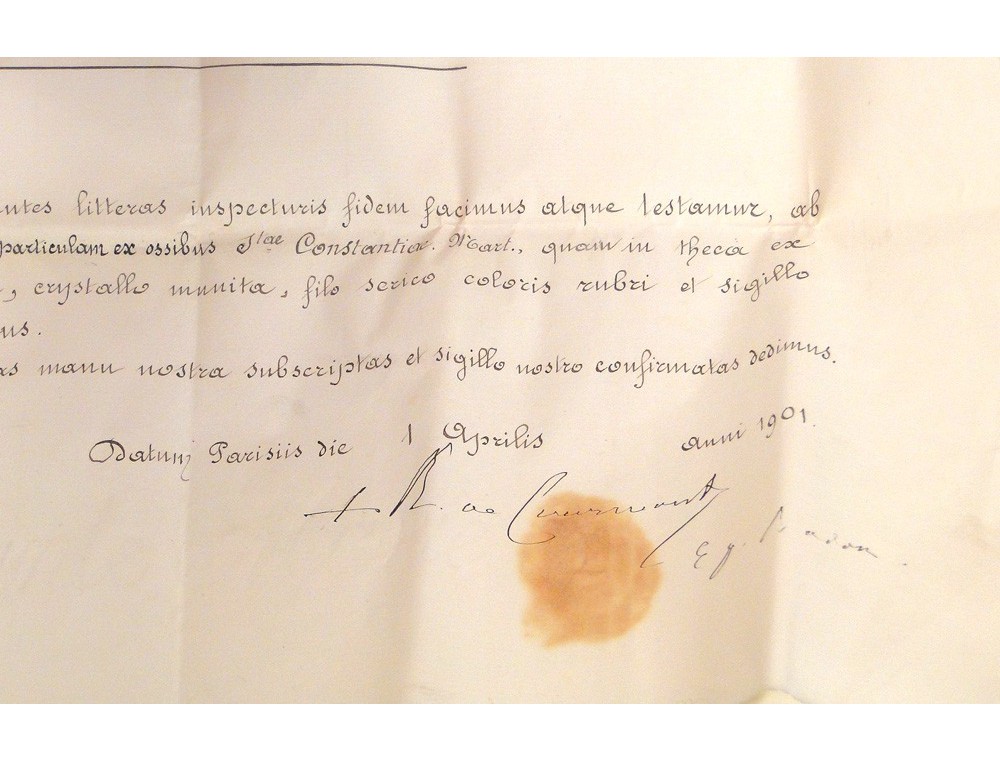 litteras inspecturis fidem facimus atque testamur, ab
particulam ex ossibus Stae Constantiae. Mart., quam in theca ex
, crystallo munita, filo serico coloris rubri et sigillo
us.
as manu nostra subscriptas et sigillo nostro confirmatas dedimus.
Datum Parisiis die 1 Aprilis anni 1901.
+ R.